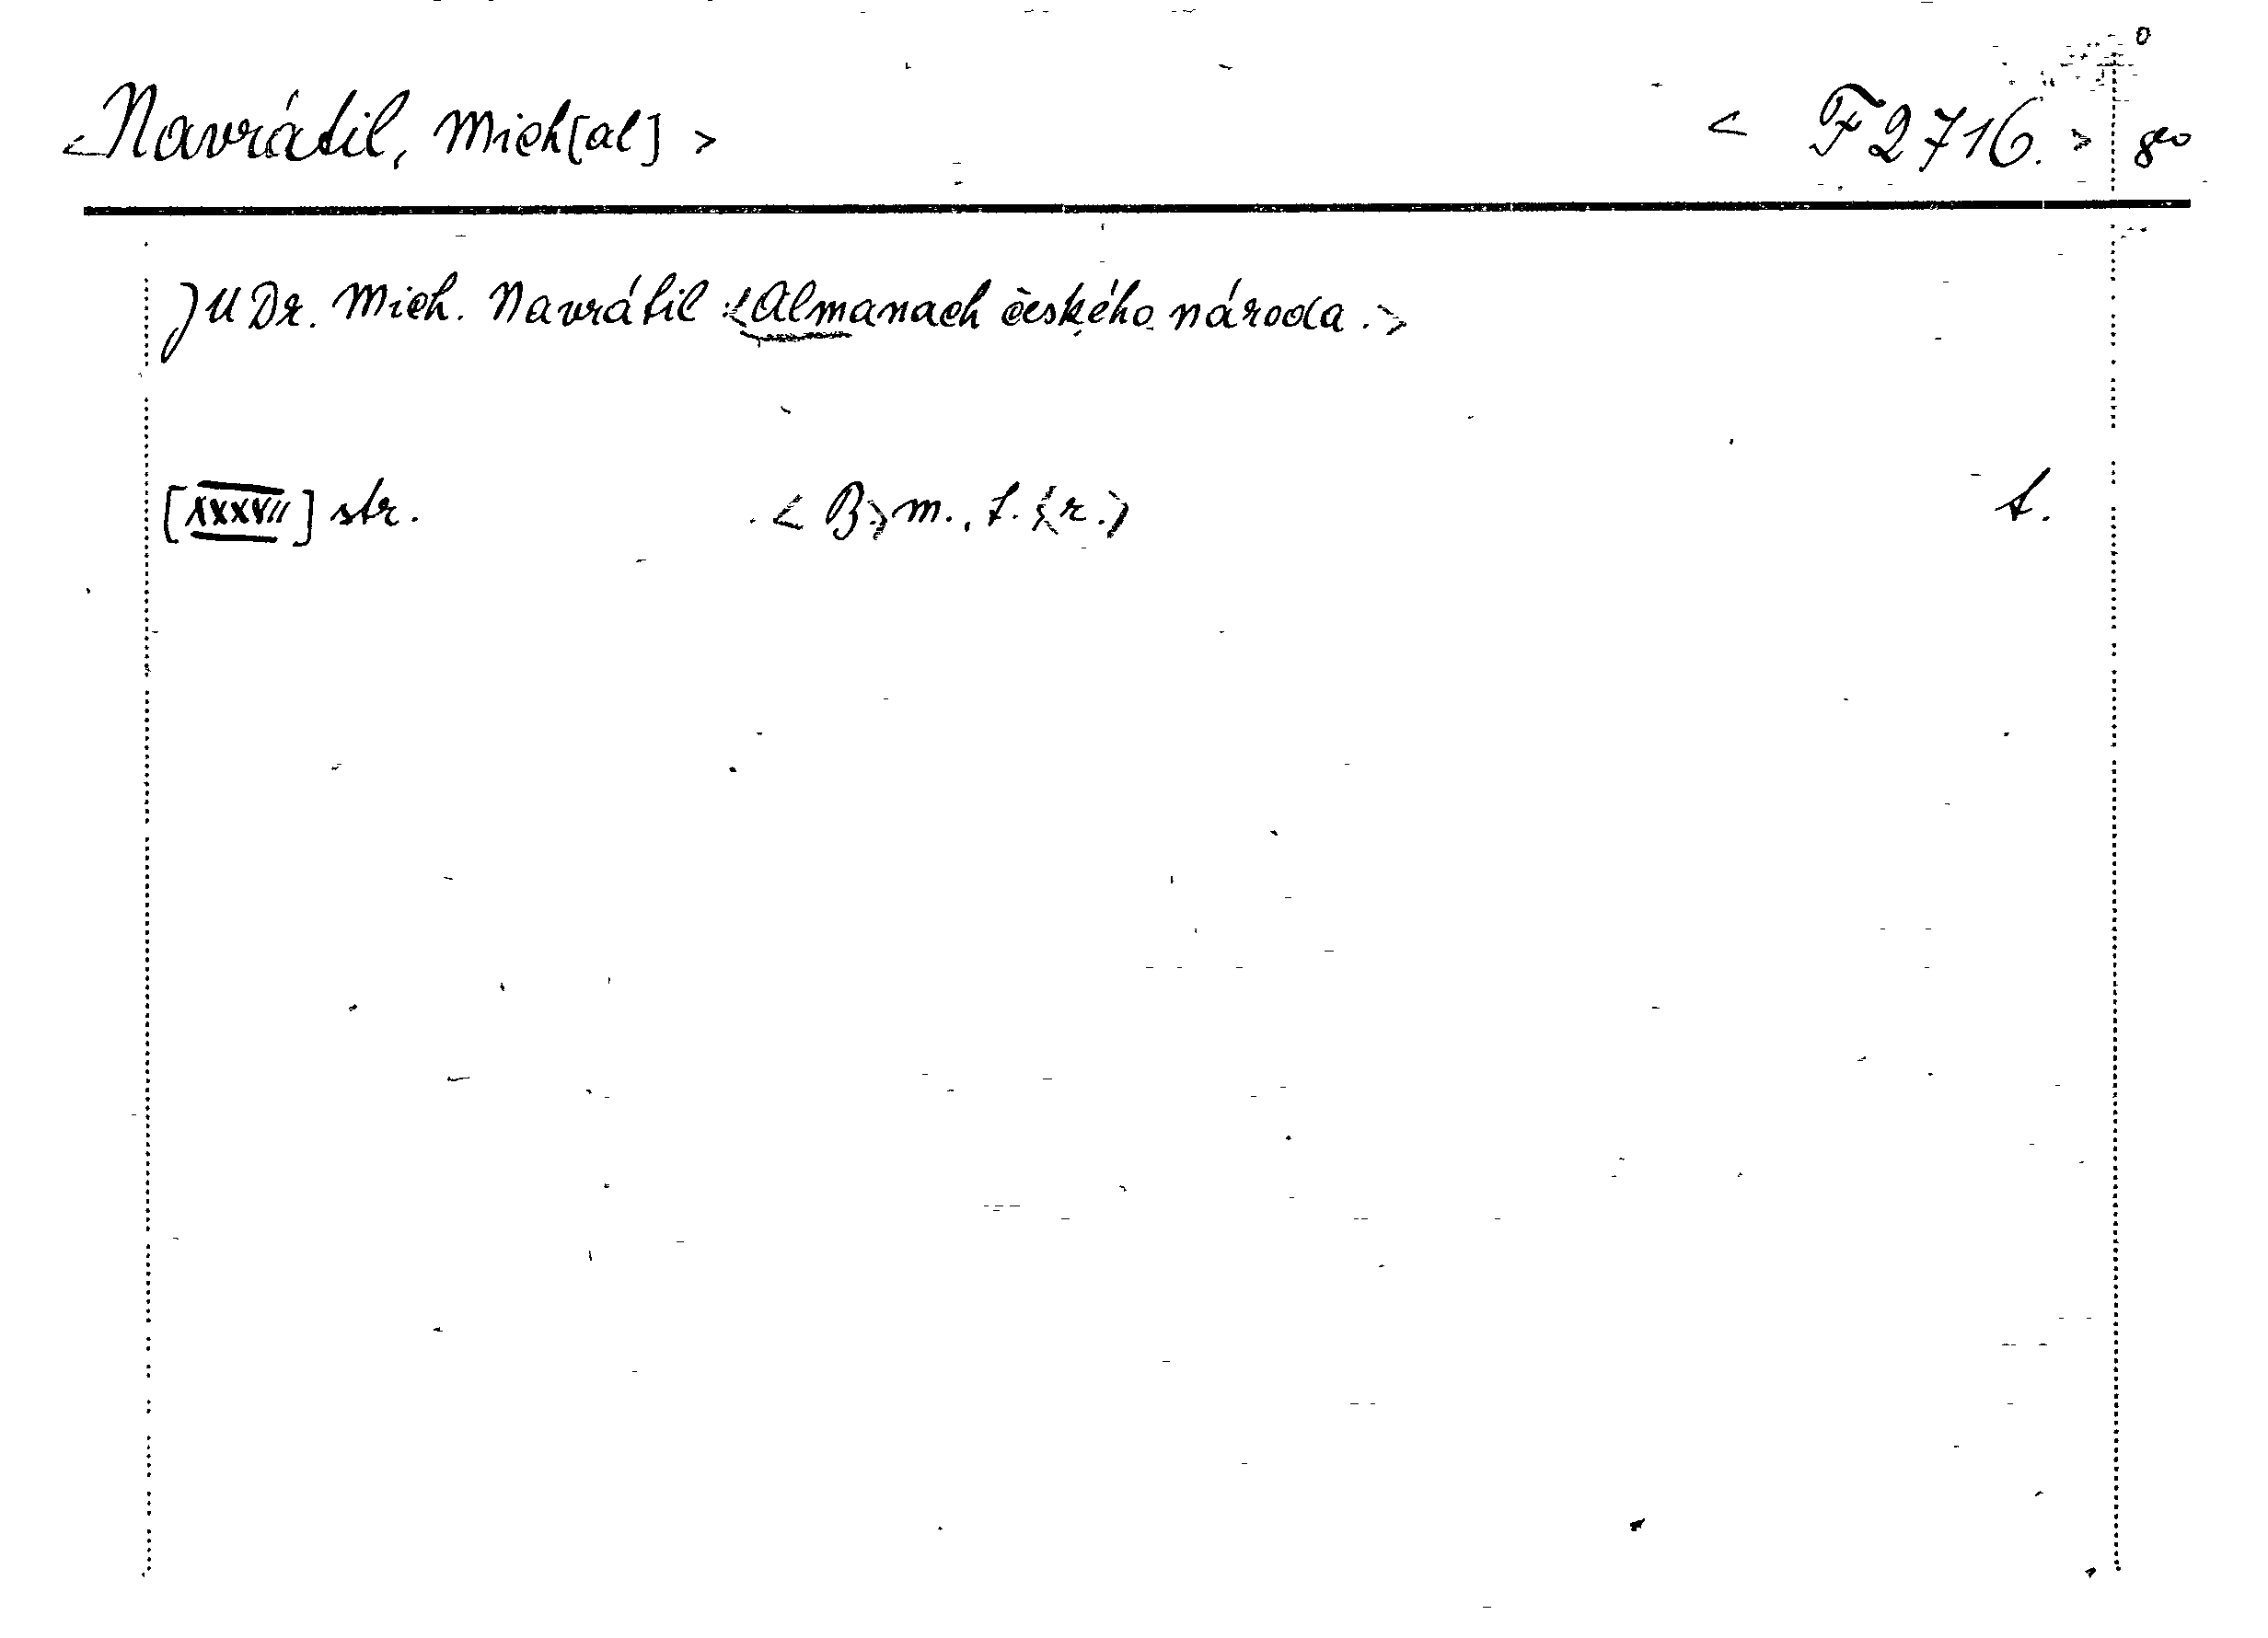 <Navrátil, Mich[al]> <F 2716.> geo
JUDr. Mich. Navrátil :<Almanach českého národa.>
[XXXVII] str. <B>m., t.<r.> t.